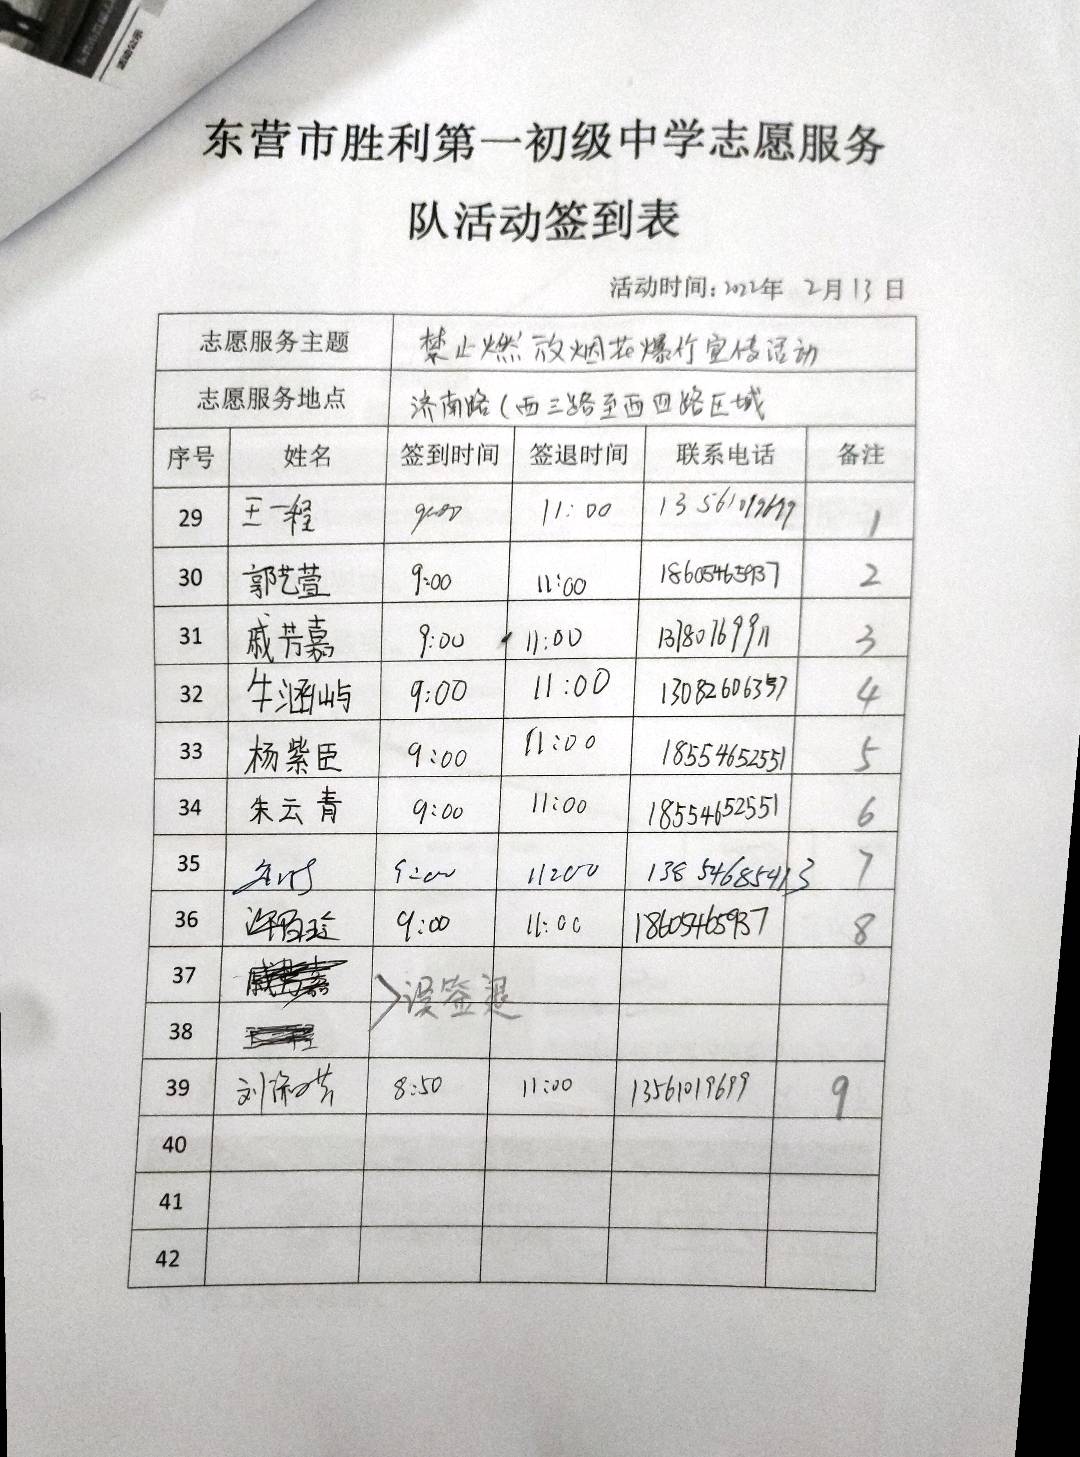 东营市胜利第一初级中学志愿服务
队活动签到表
活动时间:2022年 2月13日
志愿服务主题 禁止燃放烟花爆竹宣传活动
志愿服务地点 济南路(西三路至西四路区域
序号 姓名 签到时间 签退时间 联系电话 备注
29 王一程 9:00 11:00 13561019699 1
30 郭艺萱 9:00 11:00 18605465937 2
31 戚芳嘉 9:00 11:00 13780769911 3
32 牛涵屿 9:00 11:00 13082606357 4
33 杨紫臣 9:00 11:00 18554652551 5
34 朱云青 9:00 11:00 18554652551 6
35 9:00 11:00 13854685413 7
36 9:00 11:00 18605465937 8
37 戚芳嘉
误签退
38 王一程
39 8:50 11:00 13561019699 9
40
41
42